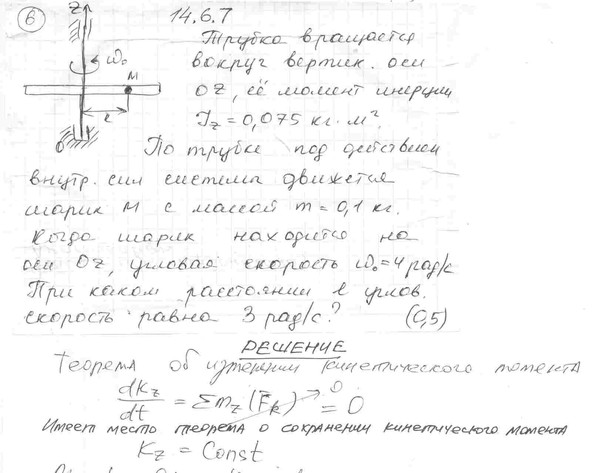 6
14.6.7
Z
ω₀
M
l
O
Трубка вращается
вокруг вертик. оси
OZ, её момент инерции
Jz = 0,075 кг·м²
По трубке под действием
внутр. сил система движется
шарик M с массой m = 0,1 кг.
Когда шарик находится на
оси Oz, угловая скорость ω₀=4рад/с
При каком расстоянии l углов.
скорость равна 3 рад/с? (0,5)
РЕШЕНИЕ
Теорема об изменении кинетического момента
dKz/dt = Σmz(F̄k) → 0 = 0
Имеет место теорема о сохранении кинетического момента
Kz = Const